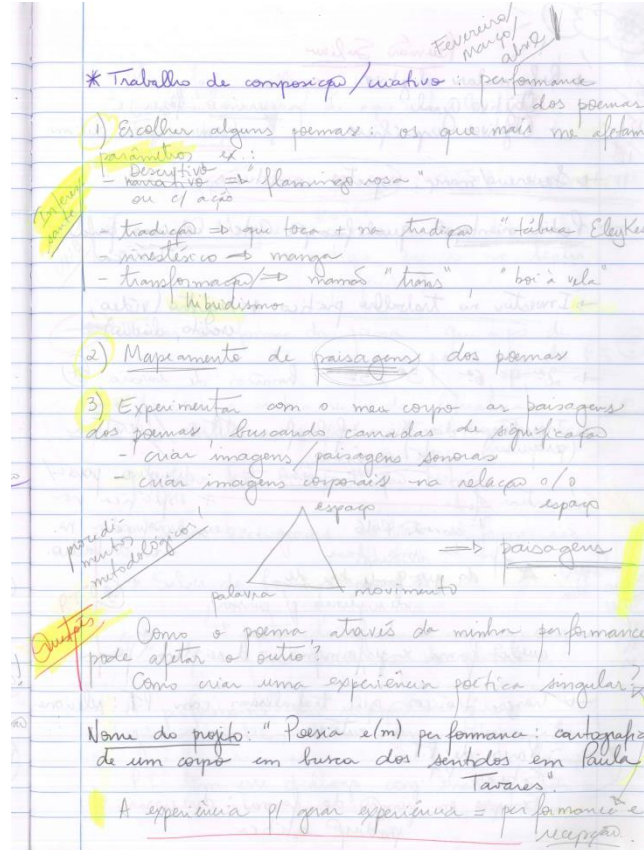 Fevereiro/
março/
abril
* Trabalho de composição/criativo: performance
dos poemas
1) Escolher alguns poemas: os que mais me afetam
parâmetros ex.:
Descritivo
- narrativo => "flamingo rosa"
ou c/ ação
Interes
sante
- tradição => que toca + na tradição "tábua Eleykeu
- sinestésico => manga
- transformação/ => mamão "trans", "boi à vela"
hibridismo
2) Mapeamento de paisagens dos poemas
3) Experimentar com o meu corpo as paisagens
dos poemas buscando camadas de significação
- criar imagens/paisagens sonoras
- criar imagens corporais na relação c/o
espaço
espaço
procedi-
mentos
metodológicos
=> paisagens
palavra movimento
Questões
Como o poema através da minha performance
pode afetar o outro?
Como criar uma experiência poética singular?
Nome do projeto: "Poesia e(m) performance: cartografia
de um corpo em busca dos sentidos em Paula
Tavares".
A experiência p/ gerar experiência = performance e
recepção.